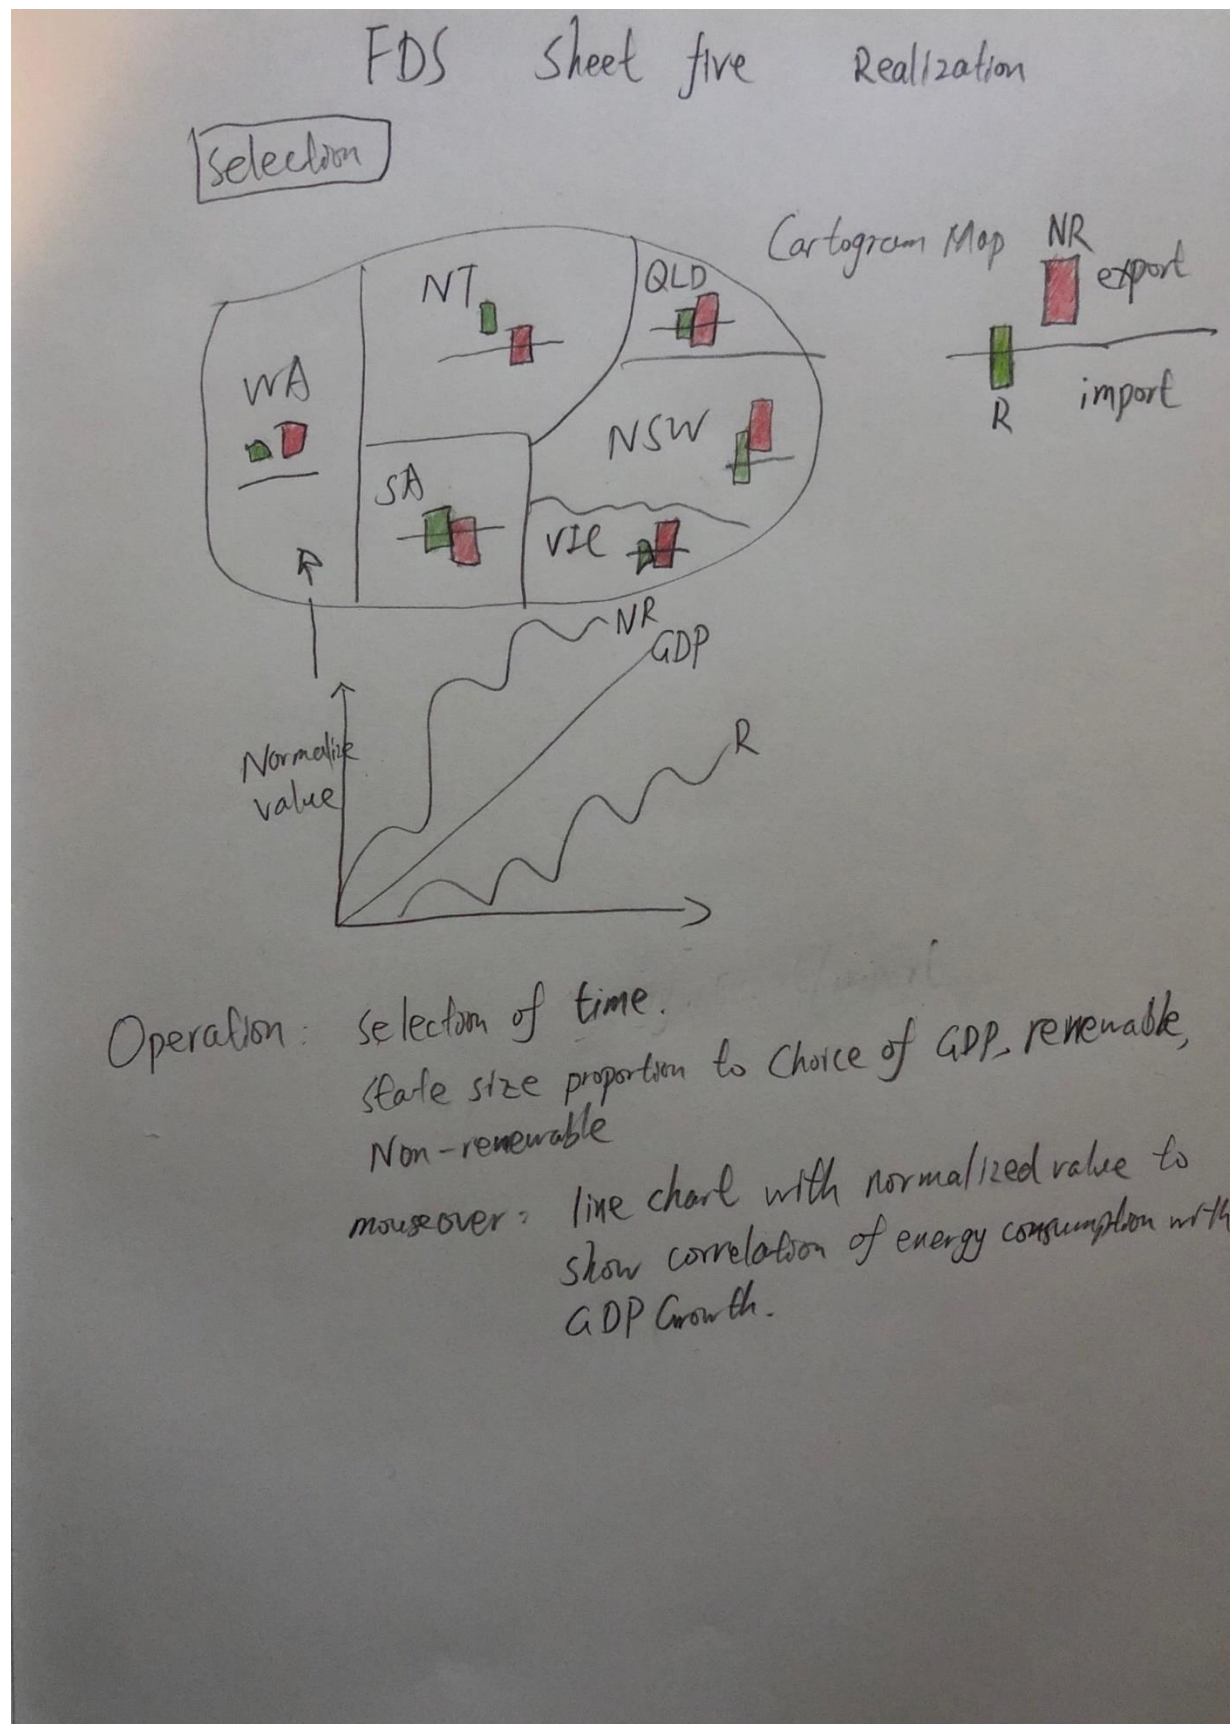 FDS Sheet five Realization
Selection
Cartogram Map
NR
export
R
import
NT
QLD
WA
NSW
SA
VIC
NR
GDP
R
Normalize
value
Operation: Selection of time.
State size proportion to Choice of GDP, renewable,
Non-renewable
mouseover: line chart with normalized value to
show correlation of energy consumption with
GDP Growth.